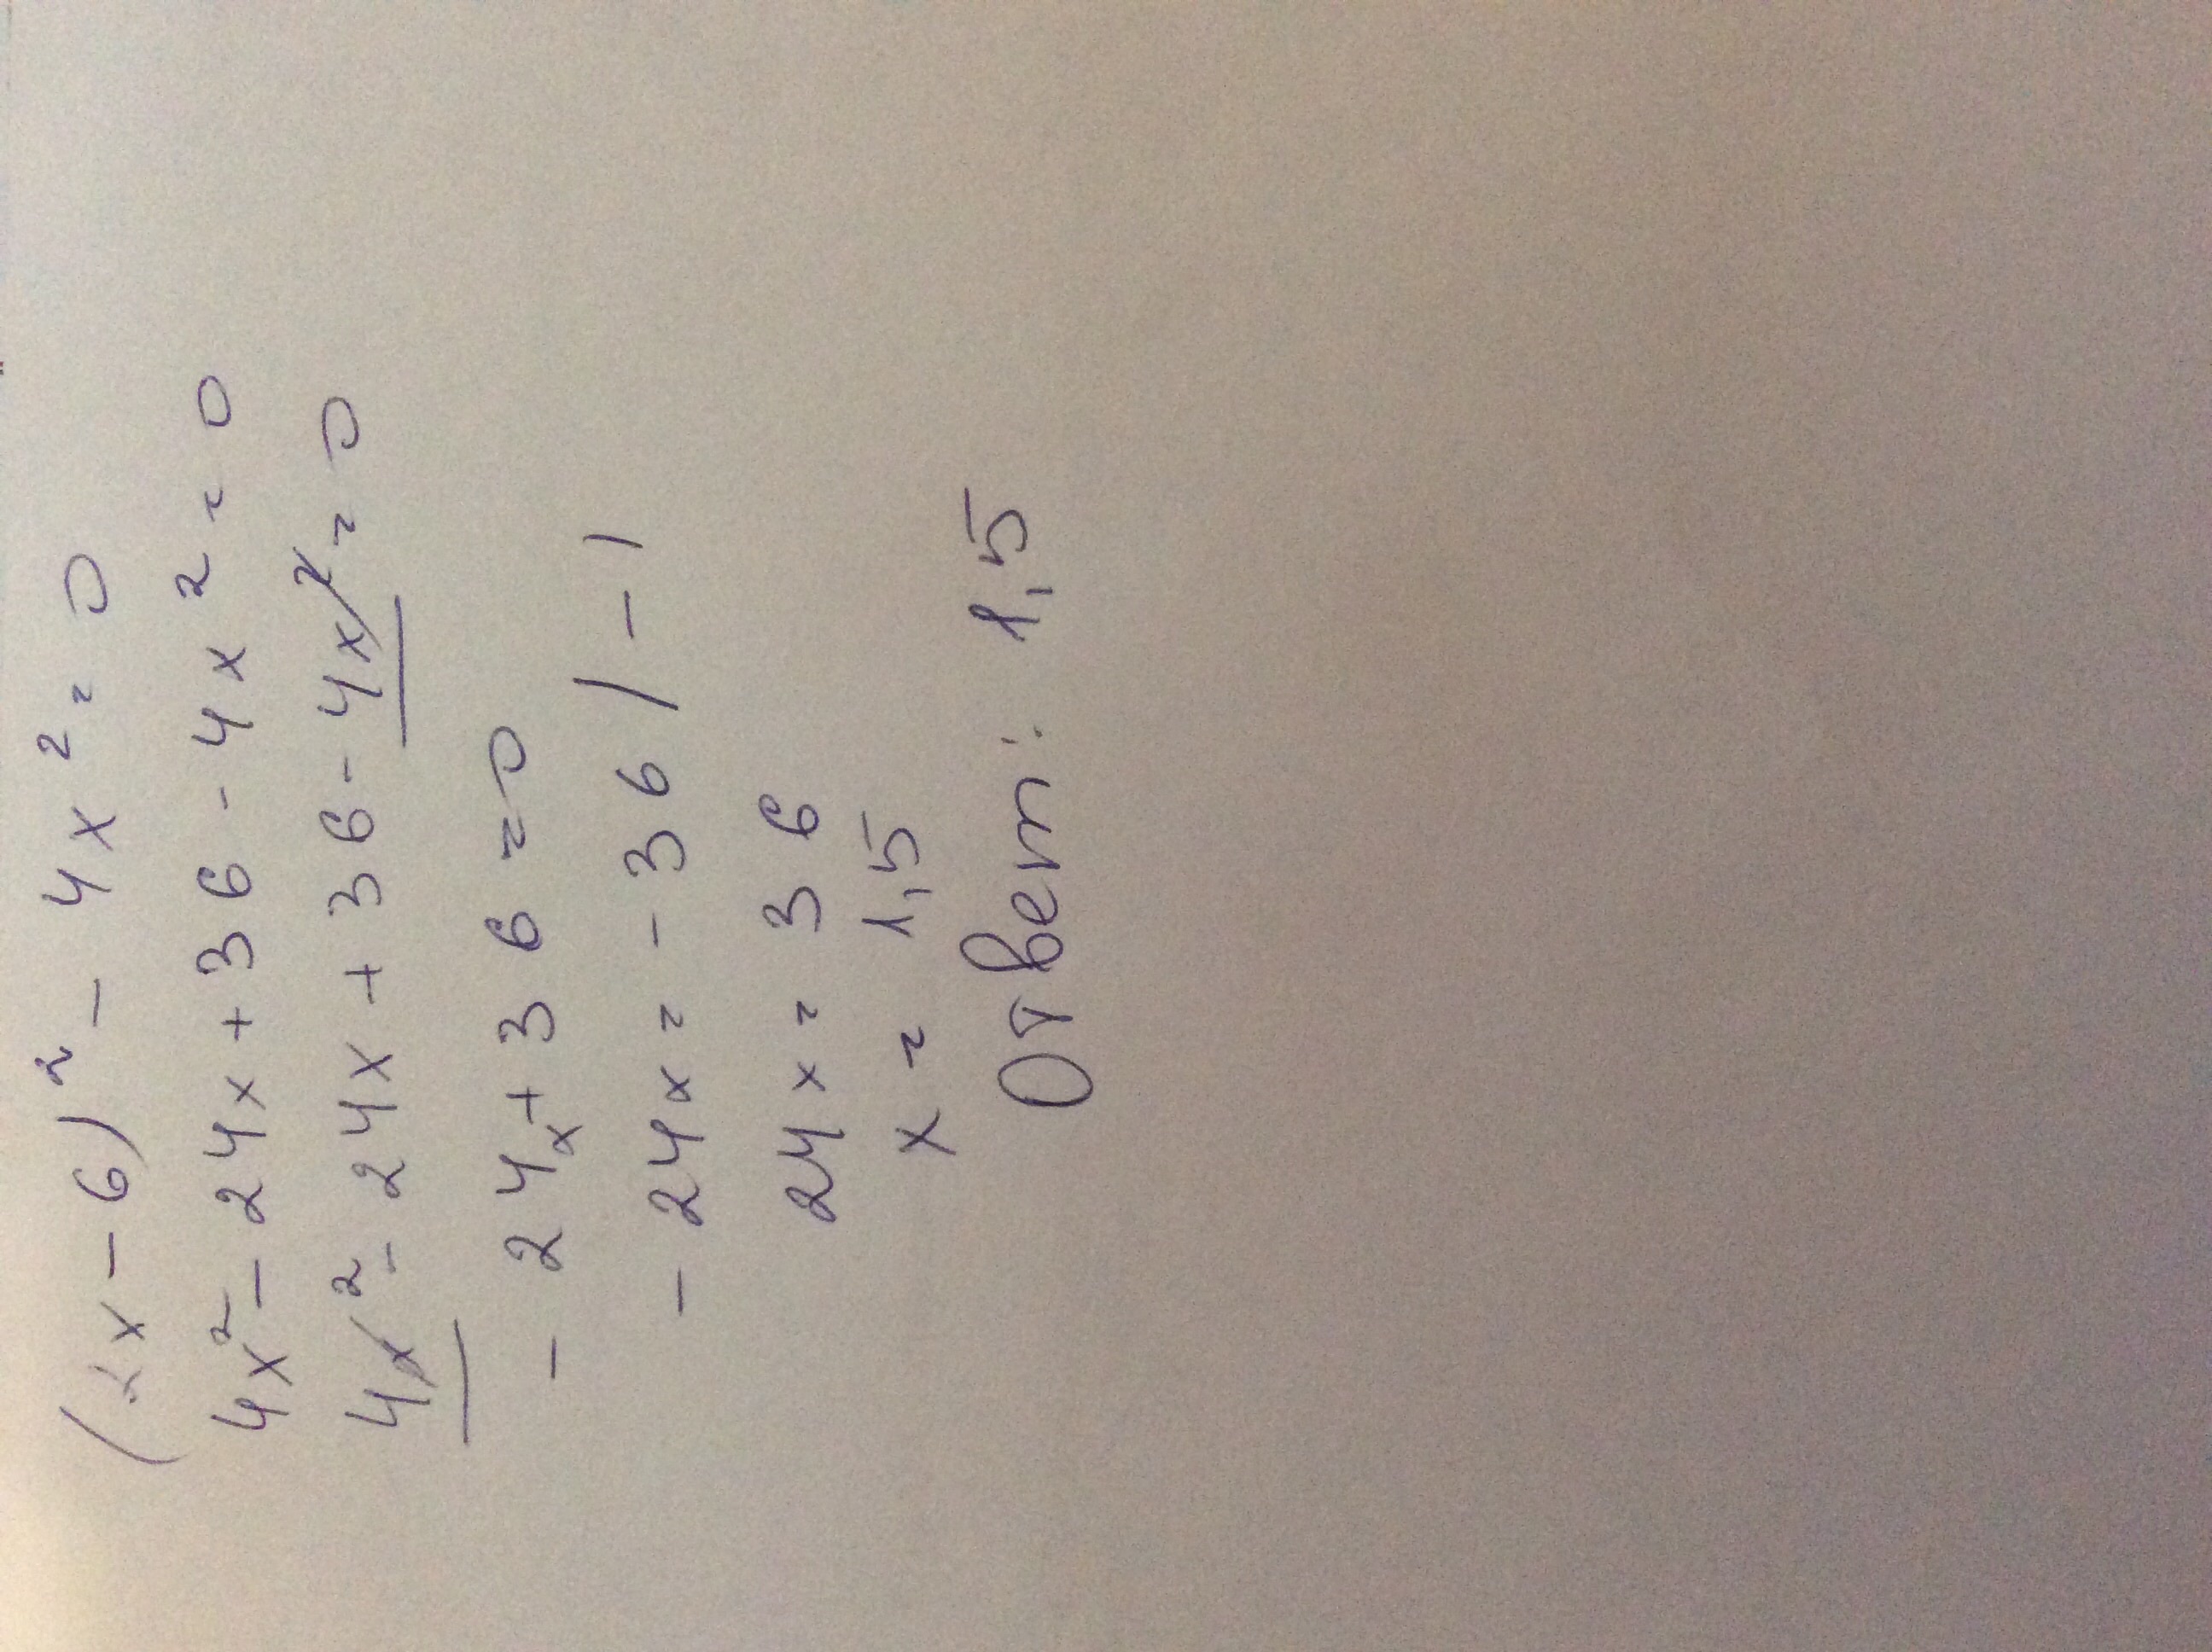 (2x-6)² - 4x² = 0
4x² - 24x + 36 - 4x² = 0
4x² - 24x + 36 - 4x² = 0
- 24x + 36 = 0
- 24x = - 36 / - 1
24x = 36
x = 1,5
Ответ: 1,5